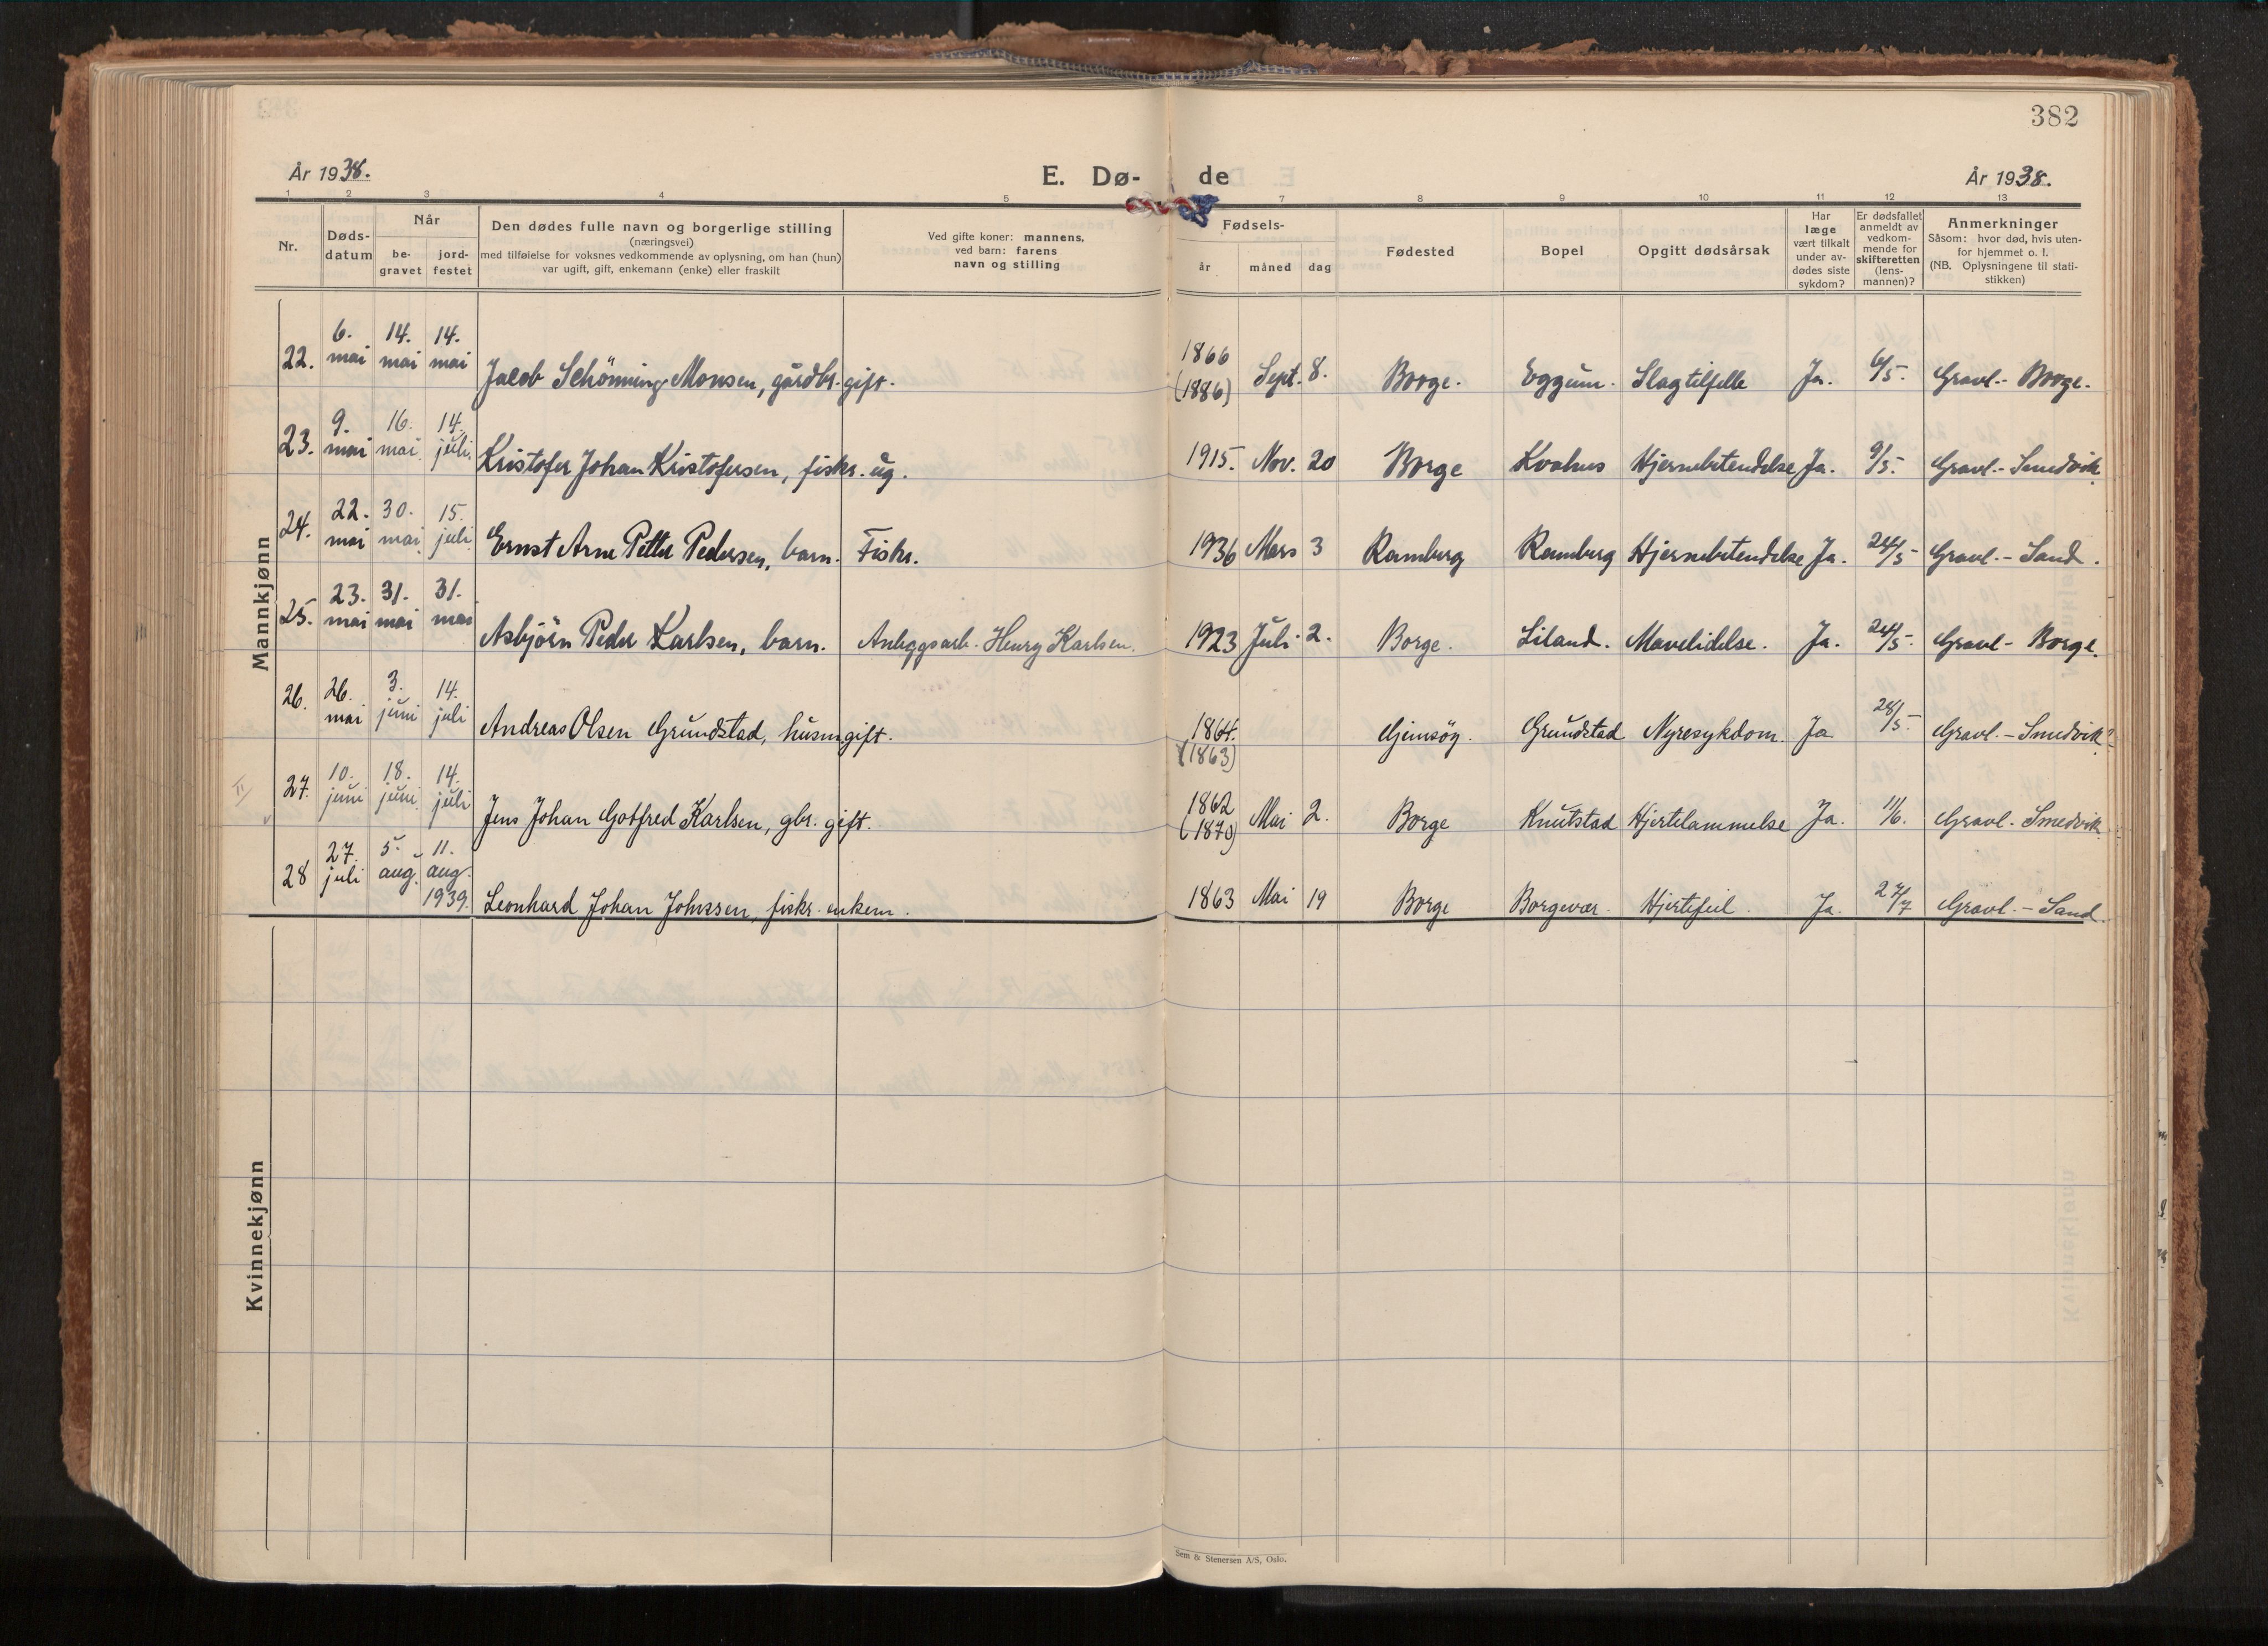 382
År 1938.
E. Dø- de
År 1938.
1 2 3 4 5 7 8 9 10 11 12 13
Nr.
Døds-
datum
Når
be-
gravet
jord-
festet
Den dødes fulle navn og borgerlige stilling
(næringsvei)
med tilføielse for voksnes vedkommende av oplysning, om han (hun)
var ugift, gift, enkemann (enke) eller fraskilt
Ved gifte koner: mannens,
ved barn: farens
navn og stilling
Fødsels-
år måned dag
Fødested
Bopel
Opgitt dødsårsak
Har
læge
vært tilkalt
under av-
dødes siste
sykdom?
Er dødsfallet
anmeldt av
vedkom-
mende for
skifteretten
(lens-
mannen)?
Anmerkninger
Såsom: hvor død, hvis uten-
for hjemmet o. l.
(NB. Oplysningene til stati-
stikken)
Mannkjønn
22. 6. mai 14. mai 14. mai Jacob Schönning Monsen, gårdbr. gift. 1866 (1886) Sept. 8. Borge. Eggum. Slagtilfelle Ja. 6/5. Gravl.- Borge.
23. 9. mai 16. mai. 14. juli. Kristofer Johan Kristofersen, fiskr. ug. 1915. Nov. 20 Borge Kvahus Hjernebetendelse Ja. 9/5. Gravl.- Smedvik.
24. 22. mai 30. mai. 15. juli Ernst Arne Petter Pedersen, barn. Fiskr. 1936 Mars 3 Ramberg Ramberg Hjernebetendelse Ja. 24/5 Gravl.- Sand.
25. 23. mai 31. mai 31. mai Asbjörn Peder Karlsen, barn. Anleggsarb. Henry Karlsen. 1923 Juli. 2. Borge. Liland. Mavelidelse. Ja. 24/5. Gravl- Borge.
26. 26. mai 3. juni 14. juli Andreas Olsen Grundstad, husm. gift. 1864. (1863) Gjemsöy. Grundstad Nyresykdom. Ja 28/5 Gravl.- Smedvik
27. 10. juni 18. juni. 14. juli Jens Johan Gotfred Karlsen, gbr. gift. 1862 (1870) Mai 2. Borge Knutstad Hjertelammelse Ja. 11/6. Gravl.- Smedvik
28 27. juli 5. aug. 11. aug. 1939. Leonhard Johan Johnsen, fiskr. enkem. 1863 Mai 19 Borge Borgevær. Hjertefeil. Ja. 27/7 Gravl.- Sand.
Kvinnekjønn
Sem & Stenersen A/S, Oslo.